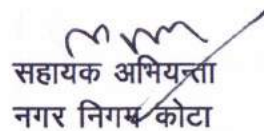 सहायक अभियन्ता
नगर निगम कोटा